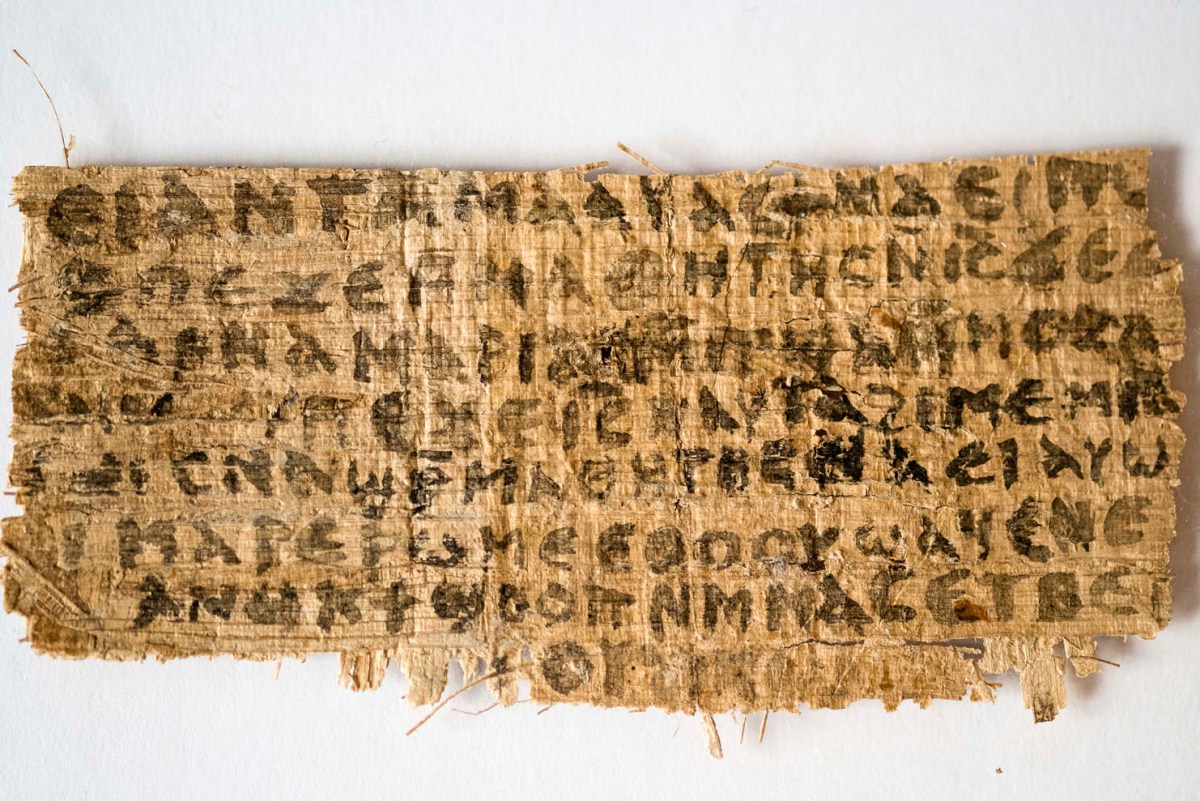 ⲉⲓⲁⲛⲧⲁⲙⲁⲁⲩⲁⲥϯⲛⲁⲉⲓⲡ
ⲡⲉϫⲉⲙⲙⲁⲑⲏⲧⲏⲥⲛⲓ̅ⲥ̅ϫⲉⲥ
ⲁⲣⲛⲁⲙⲁⲣⲓⲁⲙⲙⲡϣⲁⲙⲙⲟⲥⲁ
ⲡⲉϫⲉⲓ̅ⲥ̅ⲛⲁⲩⲧⲁϩⲓⲙⲉⲙⲛ̅
ⲥⲛⲁϣⲣ̅ⲙⲁⲑⲏⲧⲏⲥⲛⲁⲉⲓⲁⲩⲱ
ⲓⲙⲁⲣⲉⲣⲱⲙⲉⲉⲑⲟⲟⲩϣⲁϥⲉⲛⲉ
ⲁⲛⲟⲕϯϣⲟⲟⲡⲛⲙⲙⲁⲥⲉⲧⲃⲉ
ⲟ